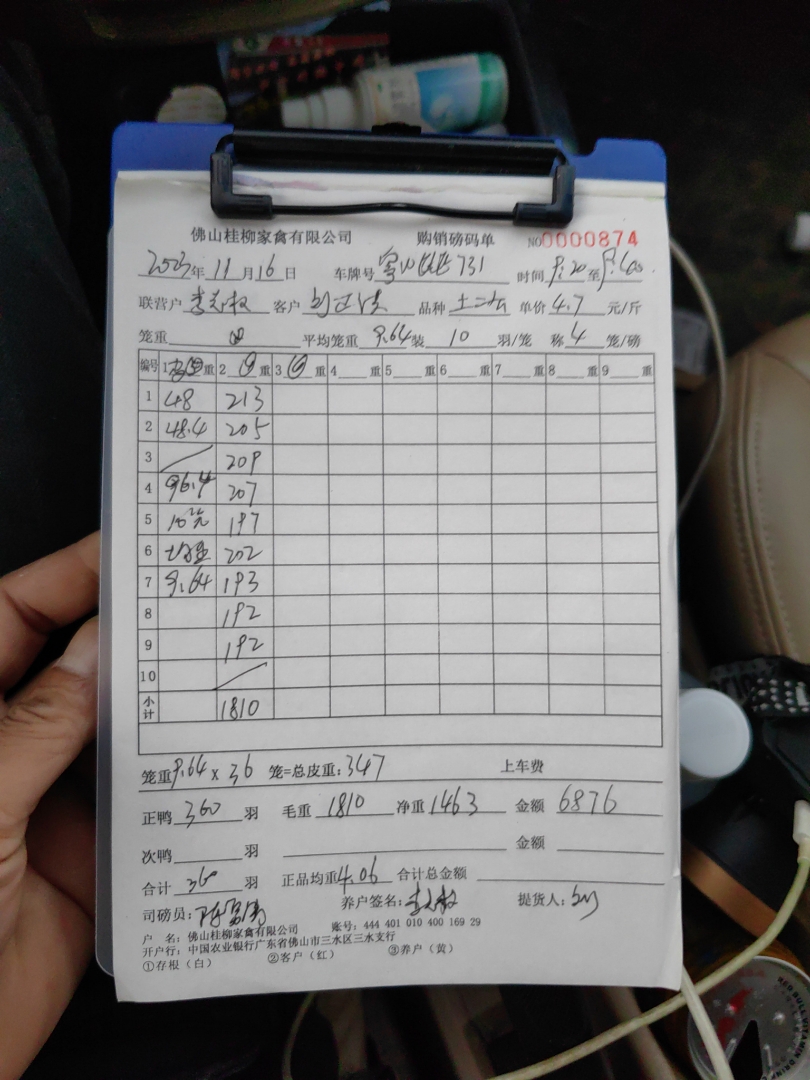 佛山桂柳家禽有限公司 购销磅码单 NO0000874
年 11 月 16 日 车牌号 731 时间 至
联营户 客户 品种 单价 4.7 元/斤
笼重 平均笼重 9.64 装 10 羽/笼 称 4 笼/磅
编号 1 重 2 重 3 重 4 重 5 重 6 重 7 重 8 重 9 重
1 48 213
2 48.4 205
3 209
4 96.4 207
5 10笼 197
6 均重 202
7 9.64 193
8 192
9 192
10
小计 1810
笼重 9.64 x 36 笼=总皮重: 347 上车费
正鸭 360 羽 毛重 1810 净重 1463 金额 6876
次鸭 羽 金额
合计 360 羽 正品均重 4.06 合计总金额
司磅员: 养户签名: 提货人:
户 名: 佛山桂柳家禽有限公司 账号: 444 401 010 400 169 29
开户行: 中国农业银行广东省佛山市三水区三水支行
①存根（白） ②客户（红） ③养户（黄）